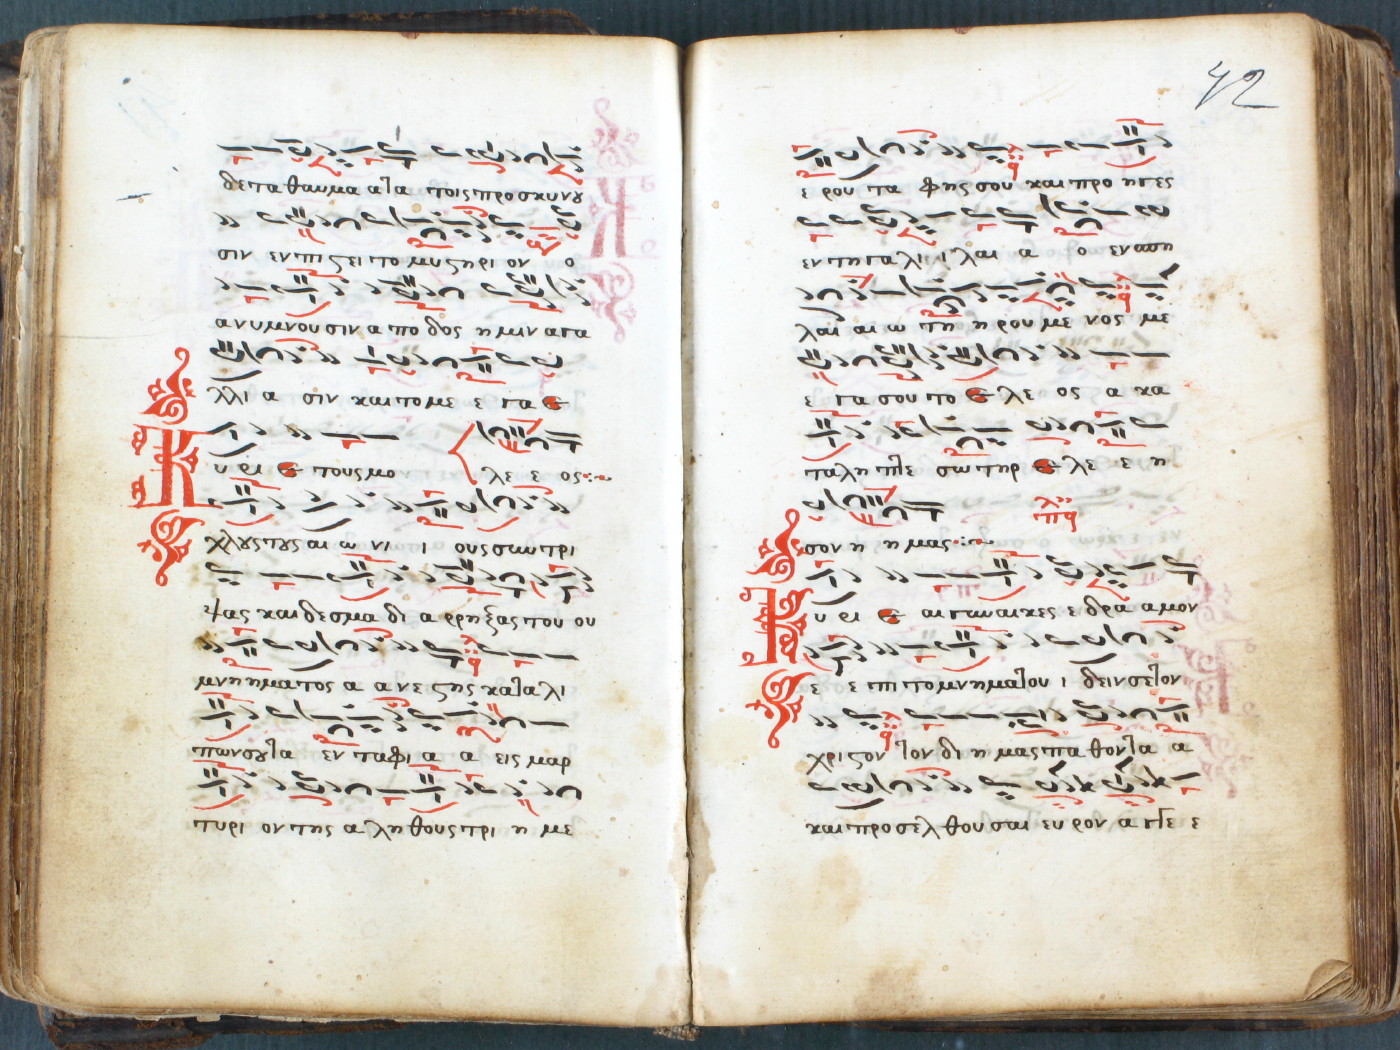 δε τα θαυμα α τα τοις προσκυνȣ
σιν εν πι ϛει το μυ ϛηρι ον ο
α νυ μνου σιν α πο δος η μιν α γα
λλι α σιν και το με ε γα ε
υ ρι ε τους μο λε ε ος
χλȣς τȣς αι ω νι ι ους συν τρι
ψας και δεσμα δι α ρρη ξας του ου
μνη ηματος α α νε ϛης κα τα λι
πων σȣ τα εν τα φι α α εις μαρ
τυρι ον της α λη θους τρι η με
42
ε ρου τα φης σου και προ η γες
εν τη γα λι ι λαι α ο εν σπη
λαι αι ω τη η ρου με νος με
ε γα σου το ε λε ος α κα
ταλη πτε σωτηρ ε λε ε η
σον η η μας
υ ρι ε αι γυναικες ε δρα α μον
ε ε πι το μνημα του ι δειν σε τον
χριϛον τον δι η μας πα θον τα α
και προ σελ θου σαι ευ ρον α γγε ε